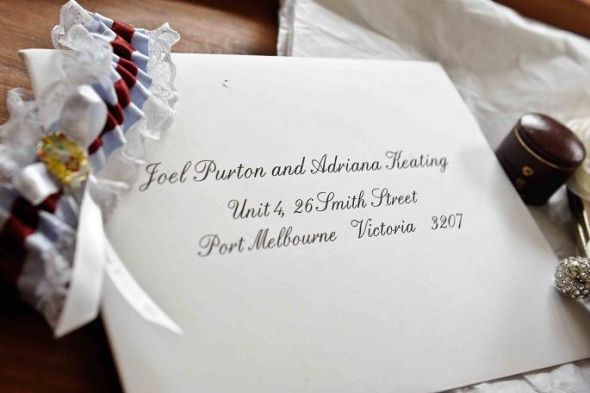 Joel Purton and Adriana Keating
Unit 4, 26 Smith Street
Port Melbourne Victoria 3207